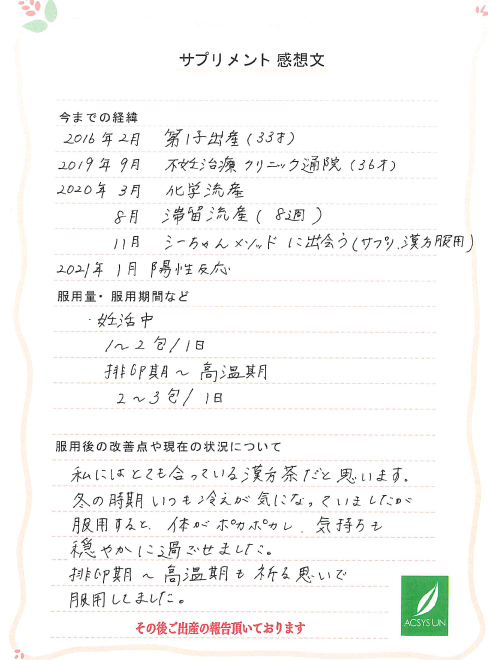 サプリメント 感想文
今までの経緯
2016年2月 第1子出産(33才)
2019年9月 不妊治療クリニック通院(36才)
2020年3月 化学流産
8月 滞留流産(8週)
11月 シーちゃんメソッドに出会う(サプリ、漢方服用)
2021年1月 陽性反応
服用量・服用期間など
・妊活中
1〜2包/1日
排卵期〜高温期
2〜3包/1日
服用後の改善点や現在の状況について
私にはとても合っている漢方茶だと思います。
冬の時期いつも冷えが気になっていましたが
服用すると、体がポカポカし、気持ちも
穏やかに過ごせました。
排卵期〜高温期も祈る思いで
服用してました。
その後ご出産の報告頂いております
ACSYS UN